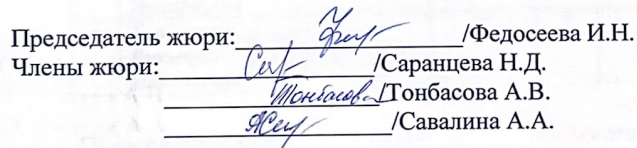 Председатель жюри: /Федосеева И.Н.
Члены жюри: /Саранцева Н.Д.
Тонбасова /Тонбасова А.В.
/Савалина А.А.